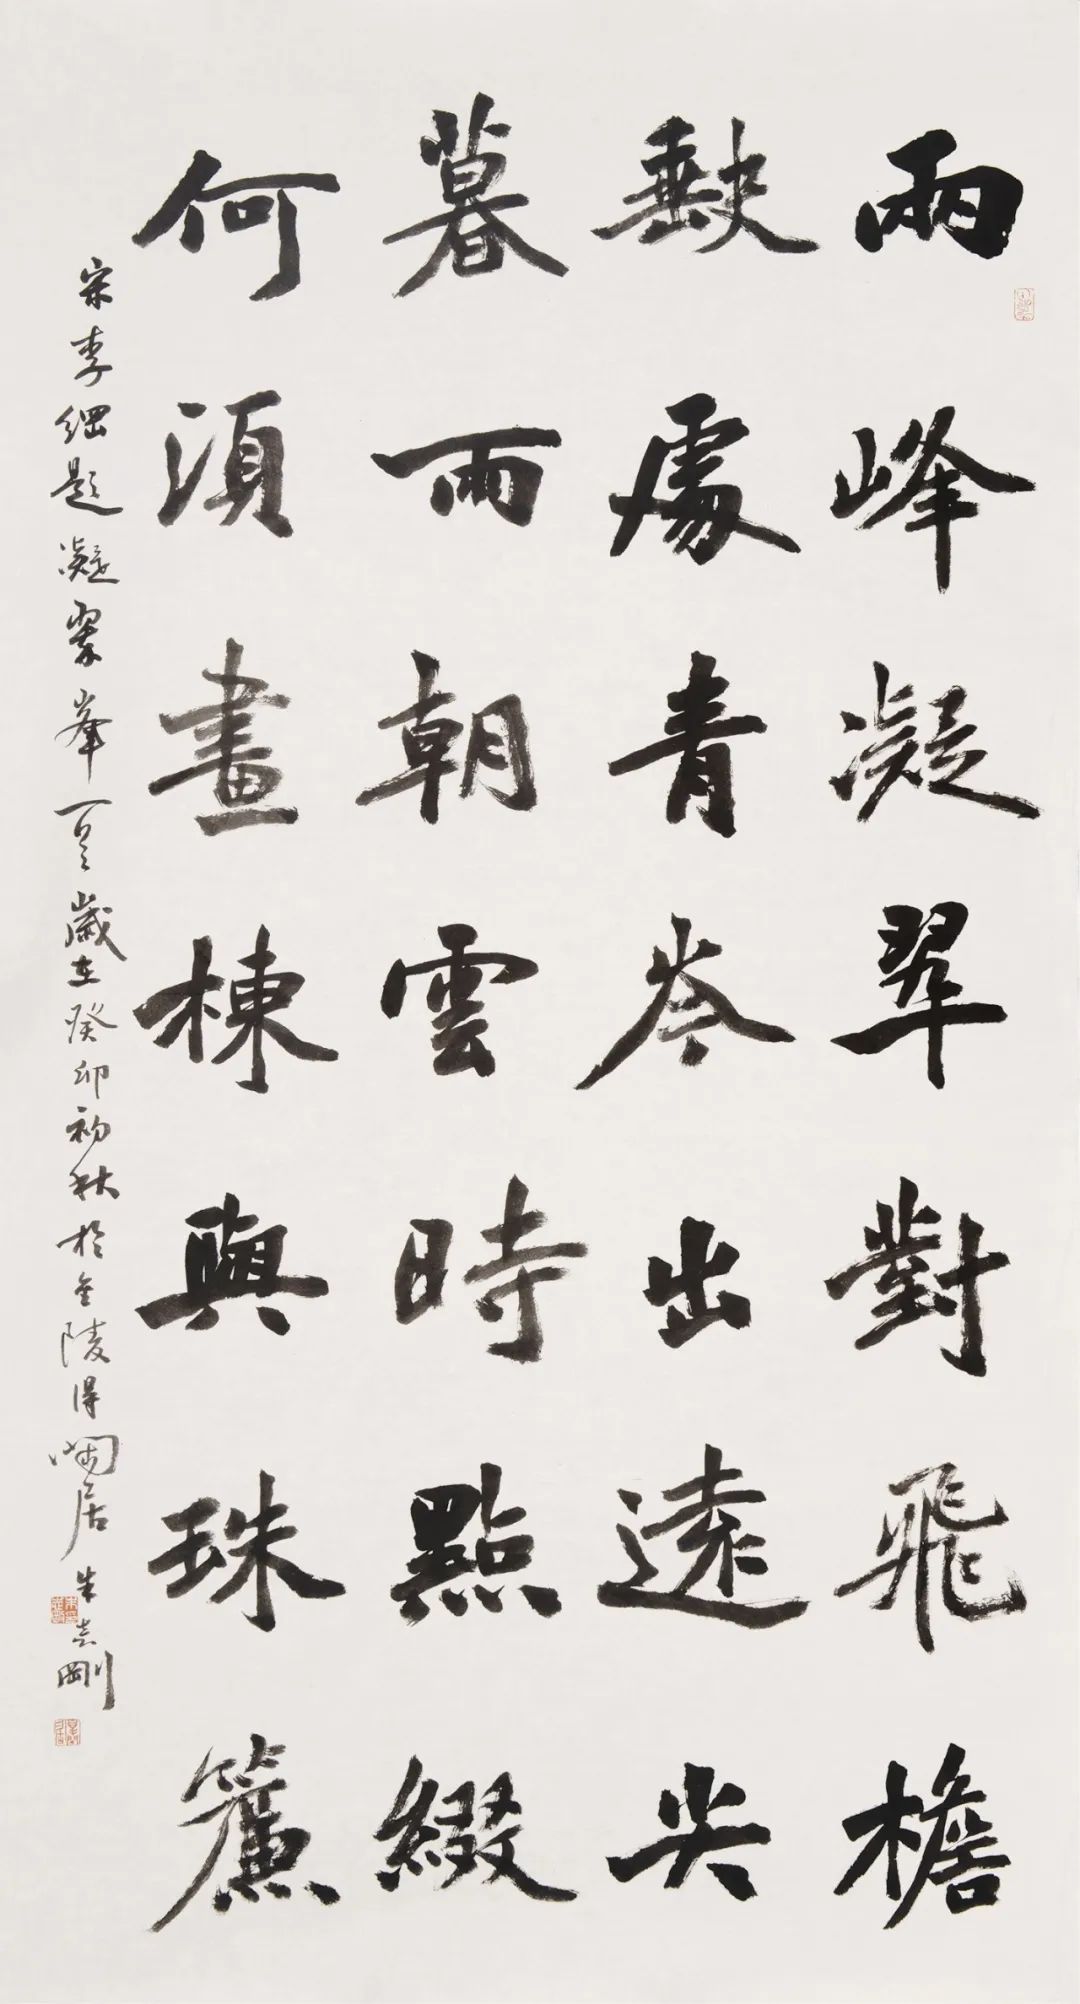 兩峰凝翠對飛檐
缺處青岑出遠尖
暮雨朝雲時點綴
何須畫棟與珠簾
宋李綱題凝翠峯一首歲在癸卯初秋於金陵得居朱志剛